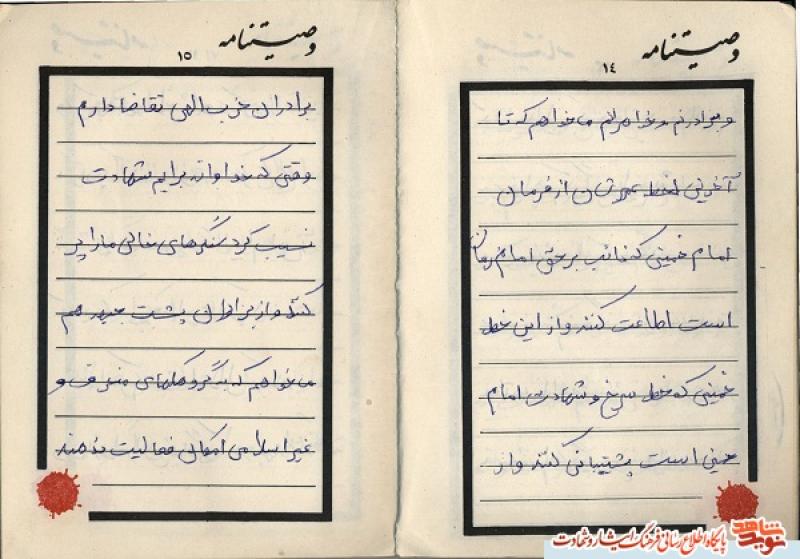 وصیتنامه
۱۴
و برادرنم و خواهرانم میخواهم که تا
آخرین لحظه عمرشان از فرمان
امام خمینی که نائب بر حق امام زمان
است اطاعت کنند و از این خط
خمینی که خط سرخ و شهادت امام
حسینی است پشتیبانی کنند و از
وصیتنامه
۱۵
برادران حزب الهی تقاضا دارم
وقتی که خداوند برایم شهادت
نسیب کرد سنگرهای خالی ما را پر
کنند و از برادران پشت جبهه هم
میخواهم که به گروهکهای منحرف و
غیر اسلامی امکان فعالیت ندهند
نوید شاهد
پایگاه اطلاع رسانی فرهنگ ایثار و شهادت